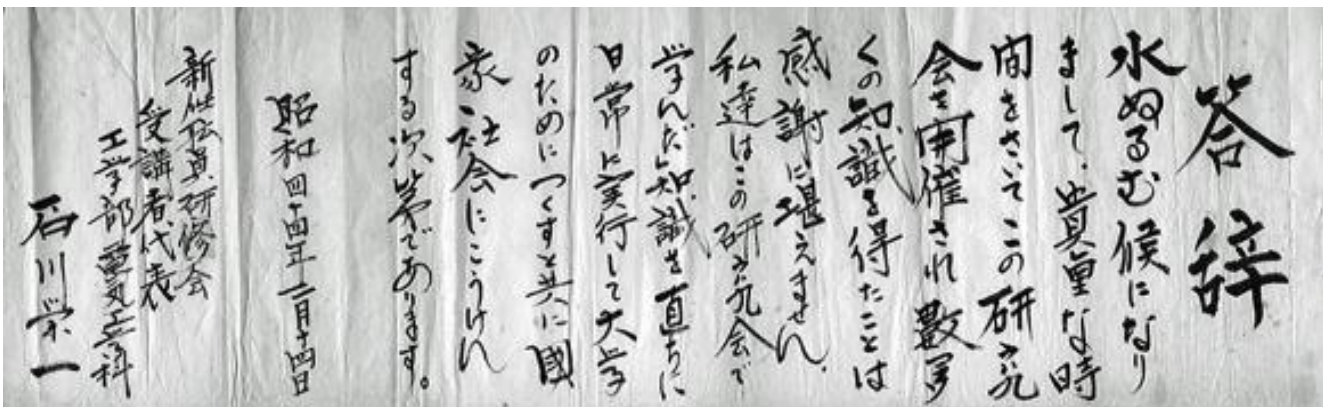 答辞
水ぬるむ候になり
まして、貴重な時
間をさいてこの研究
会を開催され数多
くの知識を得たことは
感謝に堪えません。
私達はこの研究会で
学んだ知識を直ちに
日常に実行して大学
のためにつくすと共に國
家社会にこうけん
する次第であります。
昭和四十四年二月十四日
新任伝員研修会
受講者代表
工学部電気工学科
石川栄一